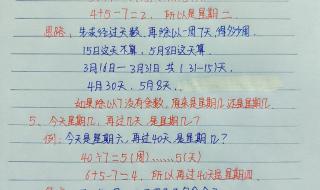 4+5-7=2, 所以是星期二.
思路: 先求经过天数, 再除以一周7天, 得多少周.
15日这天不算, 5月8日这天算.
3月16日—3月31日 共(31-15)天.
4月30天, 5月8天.
如果除以7没有余数, 原来是星期几还是星期几.
5、今天星期几, 再过几天, 是星期几?
例: 今天是星期六, 再过40天是星期几?
40÷7=5(周)......5(天)
6+5-7=4, 所以再过40天是星期四.